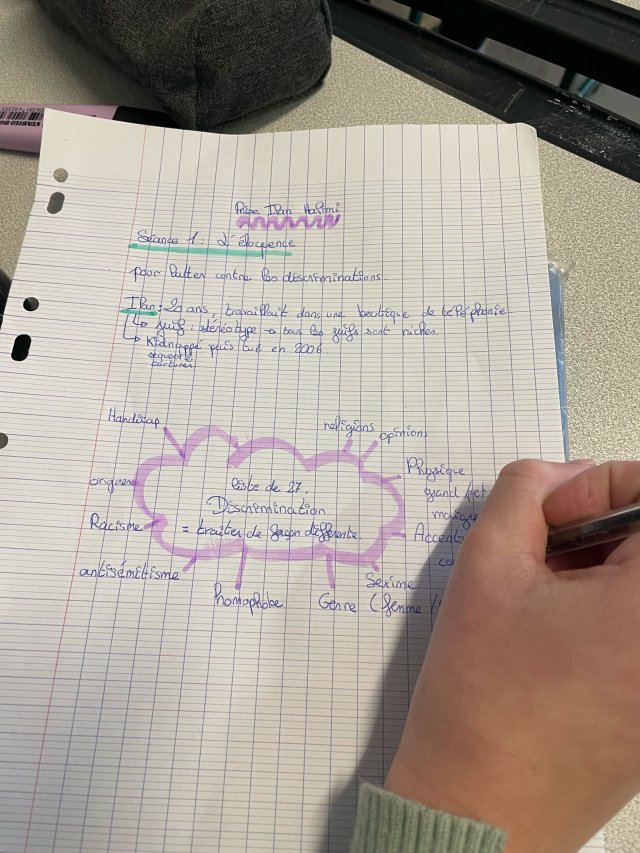 STABILO BO
Prixe Ilan Halimi
Séance 1: L'éloquence
pour lutter contre les discriminations.
Ilan: 29 ans, travaillait dans une boutique de téléphonie
↳ juif: stéréotype → tous les juifs sont riches.
↳ Kidnappé puis tué en 2006
séquestré
torturer
Handicap
religions
opinions
Physique
grand/pet
maigr
origines
liste de 27.
Discrimination
= traiter de façon différente
Racisme
Accent
co
antisémitisme
homophobe
Genre (femme /
Sexime